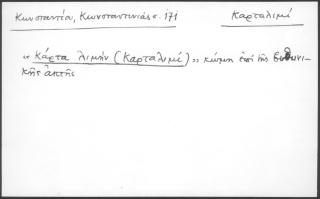 Κωνσταντία, Κωνσταντινιάς σ. 171
Καρταλιμί
« Κάρτα λιμήν (Καρταλιμί) » κώμη ἐπί τῆς βιθυνι-
κῆς ἀκτῆς